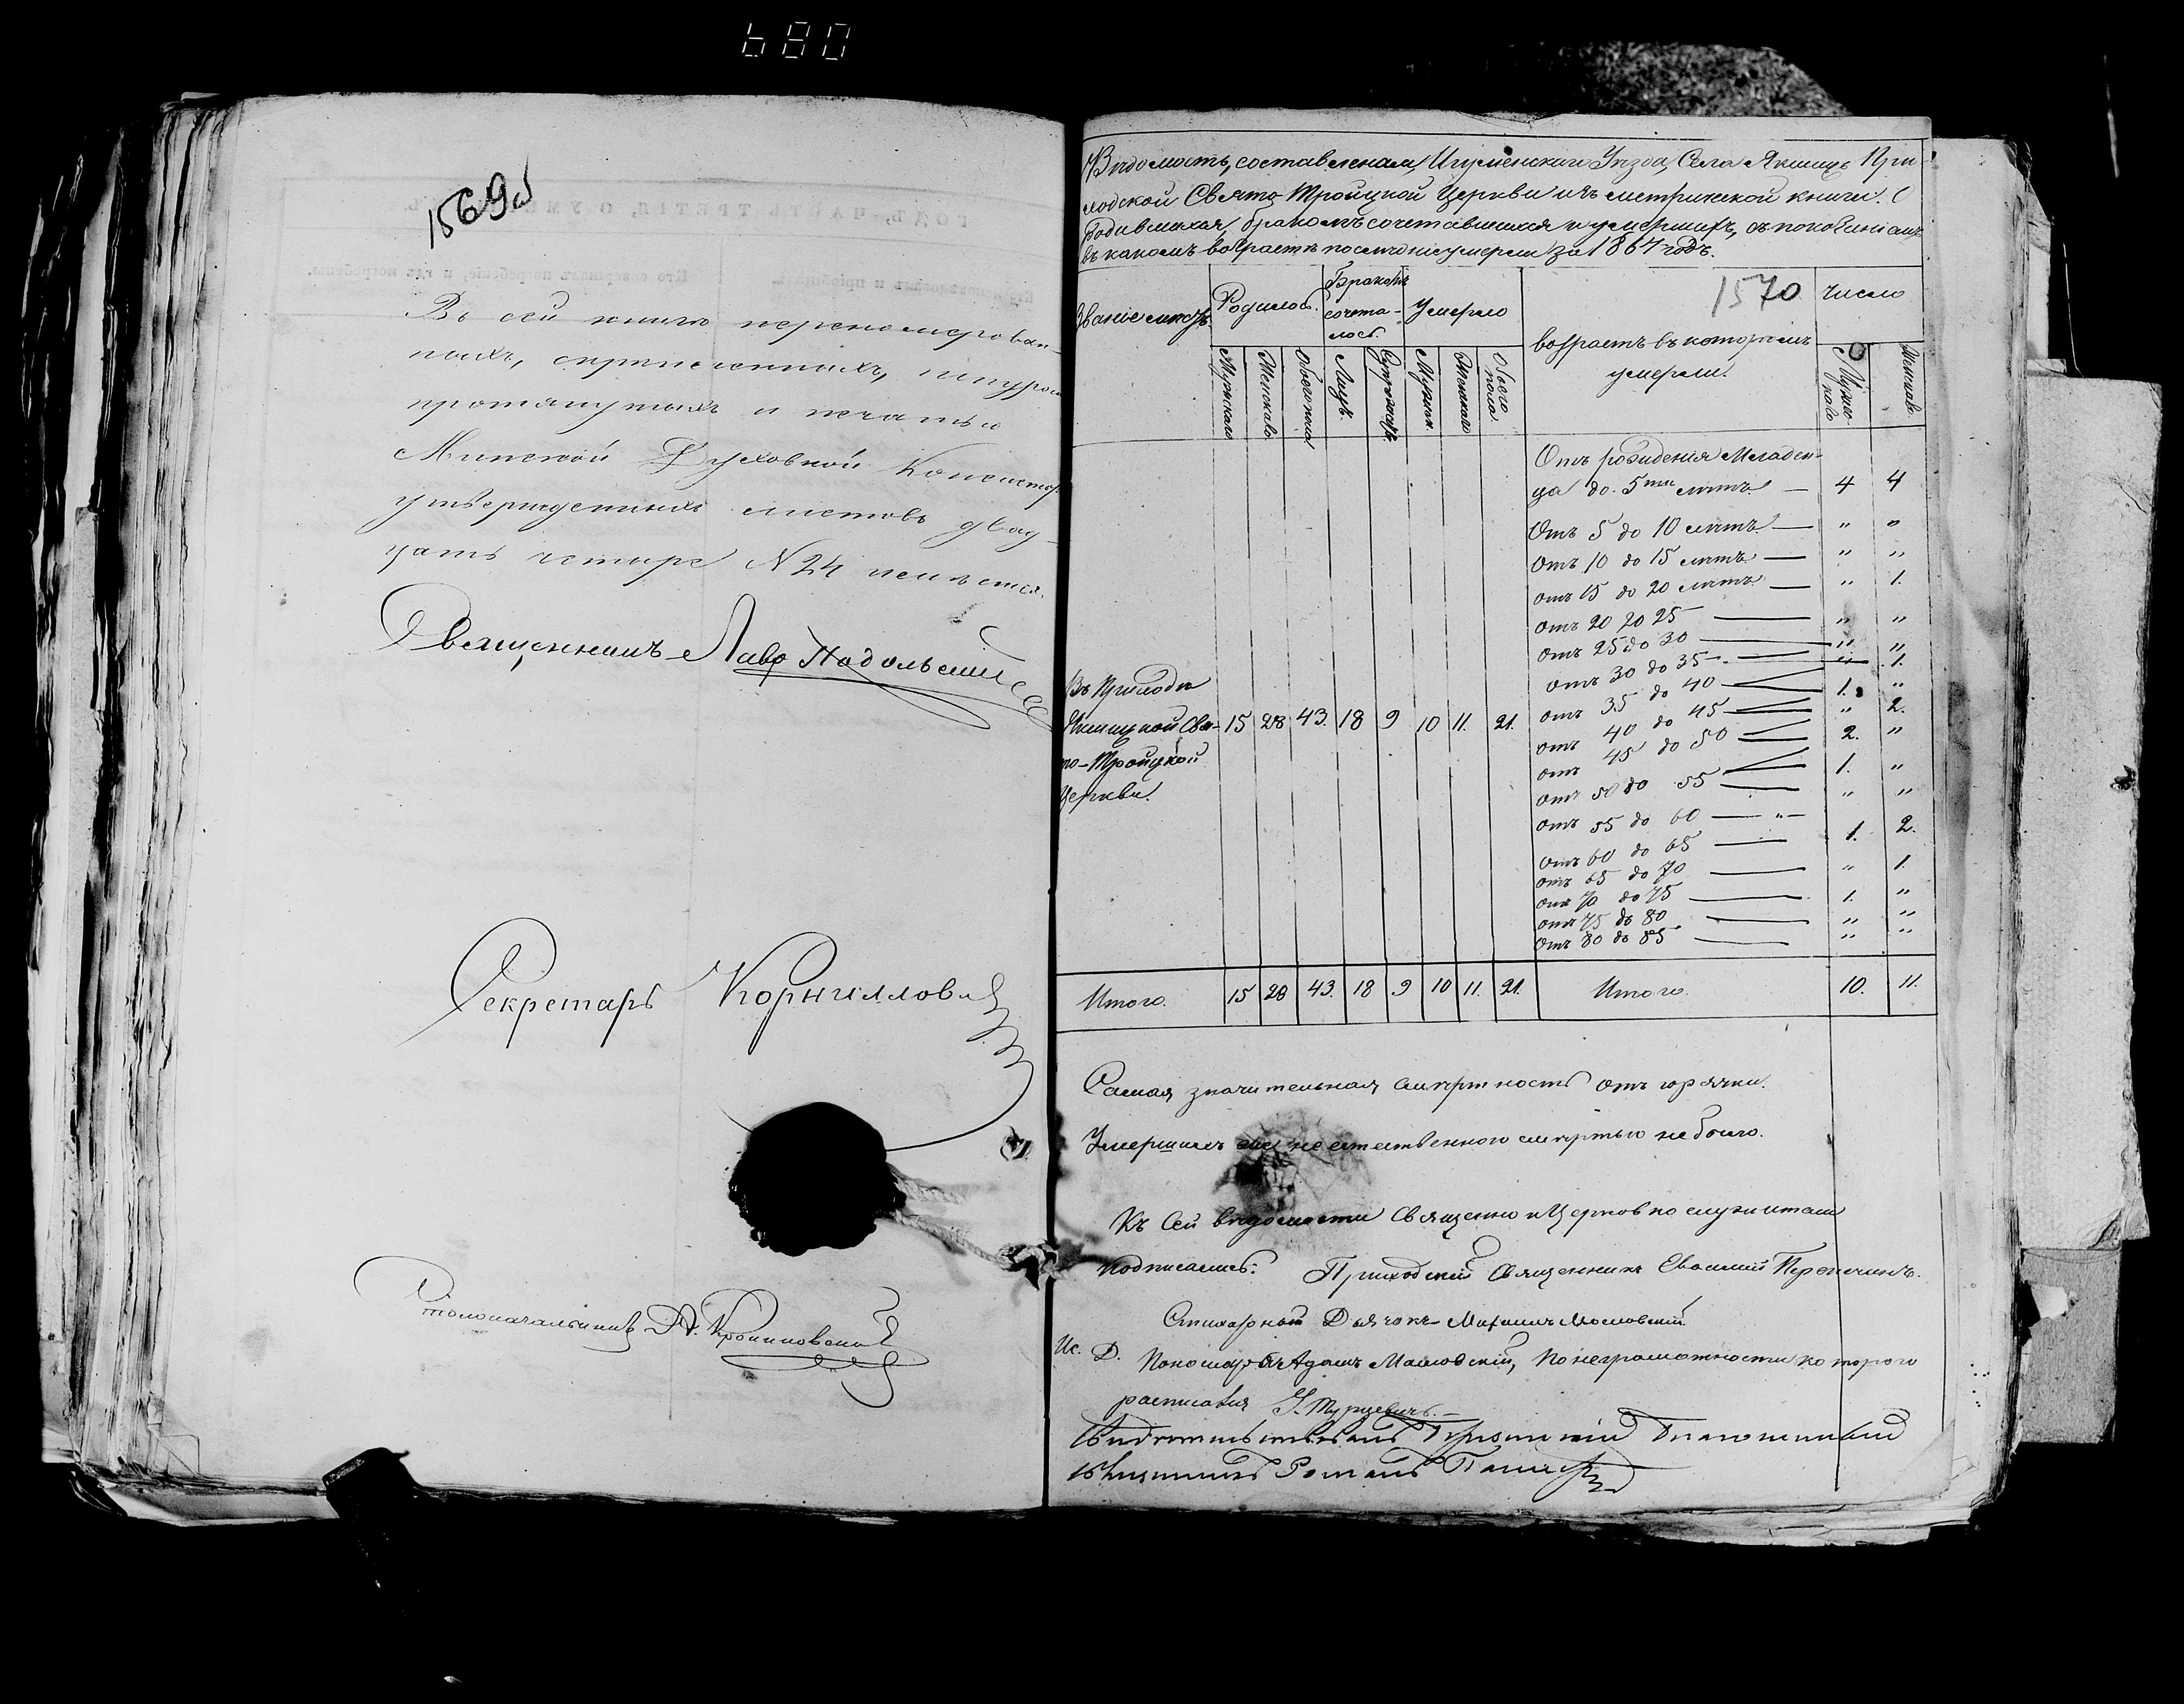 680
1569об
Въ сей книгѣ перенумерован-
ныхъ, скрѣпленныхъ, шнуромъ
протянутыхъ и печатью
Минской Духовной Консистор
утвержденныхъ листовъ двад-
цать четыре № 24 имѣется.
Священникъ Подольскій
Секретарь Корниллов
Столоначальникъ
Вѣдомость, составленная, Игуменскаго Уѣзда, Села Якшицъ При-
ходской Свято-Троицкой Церкви изъ метрической книги. О
родившихся, бракомъ сочетавшихся и умершихъ, съ показаніемъ
въ какомъ возрастѣ послѣдніе умерли за 1867 годъ.
1570
Званіе мѣстъ.
Родилось.
Бракомъ
сочета-
лось.
Умерло
возрастъ въ которомъ
умерли.
число
Мужскаго
Женскаго
Обоего пола
Лицъ.
Супружествъ
Мужеск.
Женскаго
Обоего
пола.
Мужес-
каго
Женскаго
Отъ рожденія Младен-
ца до 5ти лѣтъ — 4 4
Отъ 5 до 10 лѣтъ — " "
Отъ 10 до 15 лѣтъ — " "
Отъ 15 до 20 лѣтъ — " 1.
Отъ 20 до 25 — " "
Отъ 25 до 30 — " "
Отъ 30 до 35 — " 1.
Отъ 35 до 40 — 1. "
Отъ 40 до 45 — " 2.
Отъ 45 до 50 — 2. "
Отъ 50 до 55 — 1. "
Отъ 55 до 60 — " — " "
Отъ 60 до 65 — 1. 2.
Отъ 65 до 70 — " 1.
Отъ 70 до 75 — 1. "
Отъ 75 до 80 — " "
Отъ 80 до 85 — " "
Въ Приходѣ
Якшицкой Свя- 15 28 43. 18 9 10 11. 21.
то-Троицкой
Церкви.
Итого. 15 28 43. 18 9 10 11. 21. Итого. 10. 11.
Самая значительная смертность отъ горячки.
Умершихъ не естественною смертью не было.
Къ сей вѣдомости Священно и Церковно служители
подписались: Приходскій Священникъ Евсевій
Стихарный Дьячокъ Михаилъ
Ис. Д. Пономаря Адамъ, по неграмотности котораго
расписался Турцевичъ. —
Свидѣтельствовалъ Благочинный
Священникъ Романъ